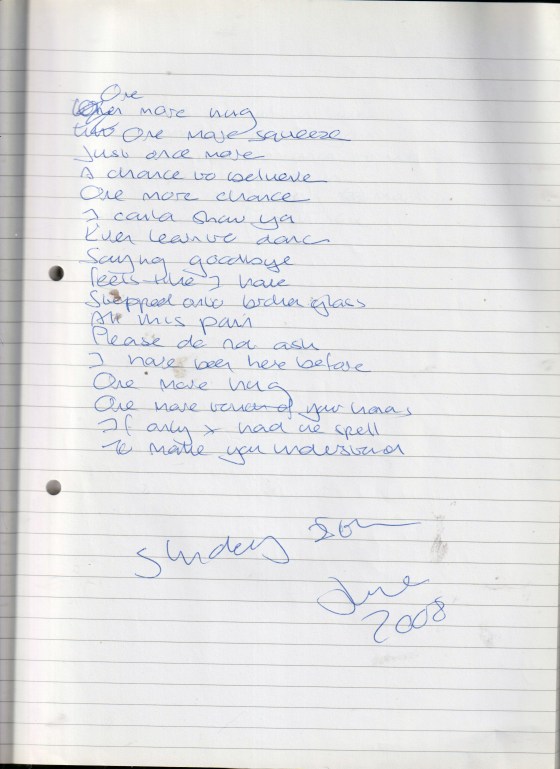 One
more hug
One more squeeze
Just once more
A chance to believe
One more chance
I coulda show ya
Ever learn to dance
Saying goodbye
Feels like I have
Stepped onto broken glass
All this pain
Please do not ask
I have been here before
One more hug
One more touch of your hands
If only I had the spell
To make you understand
Sunday
June
2008